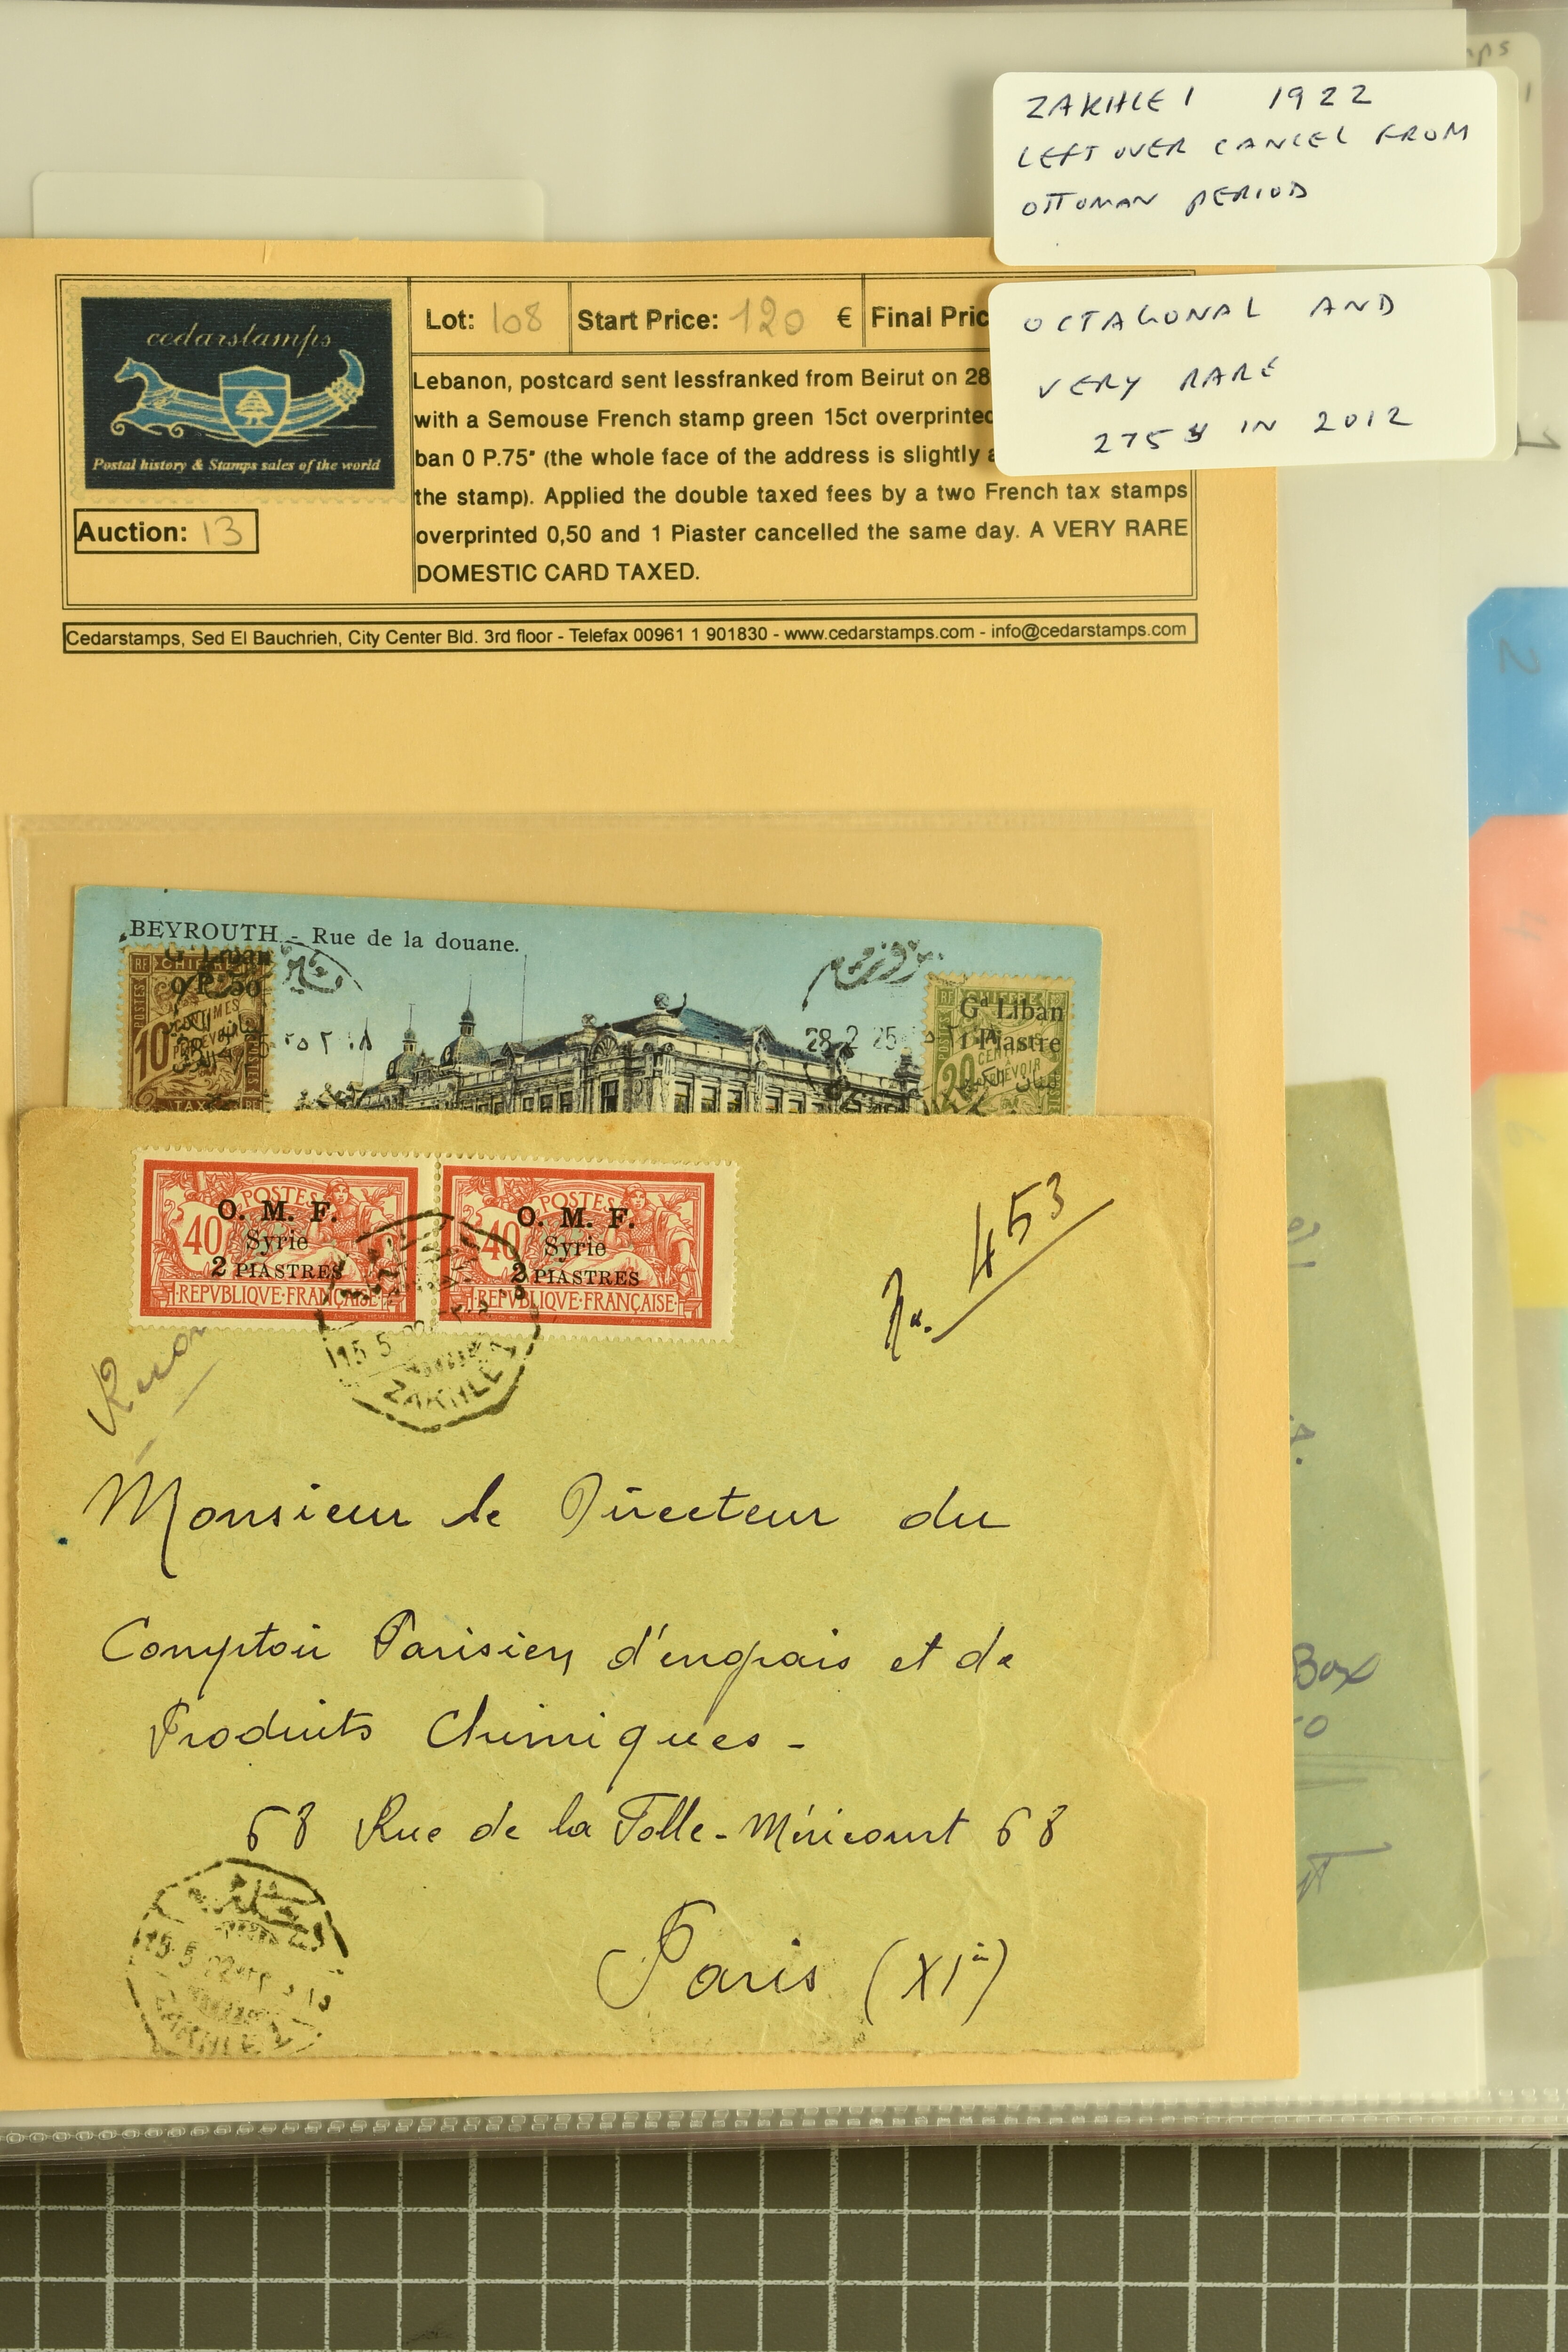 ZAKHLE 1 1922
LEFT OVER CANCEL FROM
OTTOMAN PERIOD
OCTAGONAL AND
VERY RARE
275 $ IN 2012
cedarstamps
Postal history & Stamps sales of the world
Auction: 13
Lot: 108 Start Price: 120 € Final Pric
Lebanon, postcard sent lessfranked from Beirut on 28
with a Semouse French stamp green 15ct overprinted
ban 0 P.75" (the whole face of the address is slightly a
the stamp). Applied the double taxed fees by a two French tax stamps
overprinted 0,50 and 1 Piaster cancelled the same day. A VERY RARE
DOMESTIC CARD TAXED.
Cedarstamps, Sed El Bauchrieh, City Center Bld. 3rd floor - Telefax 00961 1 901830 - www.cedarstamps.com - info@cedarstamps.com
BEYROUTH - Rue de la douane.
RF CHIFFRE
Gd Liban
0 P. 50
10 CENTIMES
TAXE
28 2 25
Gd Liban
1 Piastre
20
POSTES
40
O. M. F.
Syrie
2 PIASTRES
REPVBLIQVE FRANÇAISE
POSTES
40
O. M. F.
Syrie
2 PIASTRES
REPVBLIQVE FRANÇAISE
15 5 22
ZAHLE
No. 453
Recom
Monsieur le Directeur du
Comptoir Parisien d'engrais et de
Produits Chimiques -
68 Rue de la Folle-Méricourt 68
Paris (XIe)
15 5 22
Box